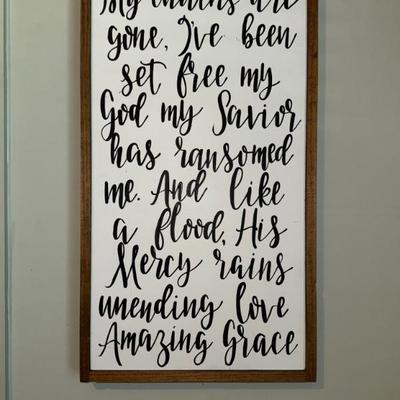 My chains are
gone, I've been
set free my
God my Savior
has ransomed
me. And like
a flood, His
Mercy rains
unending love
Amazing Grace